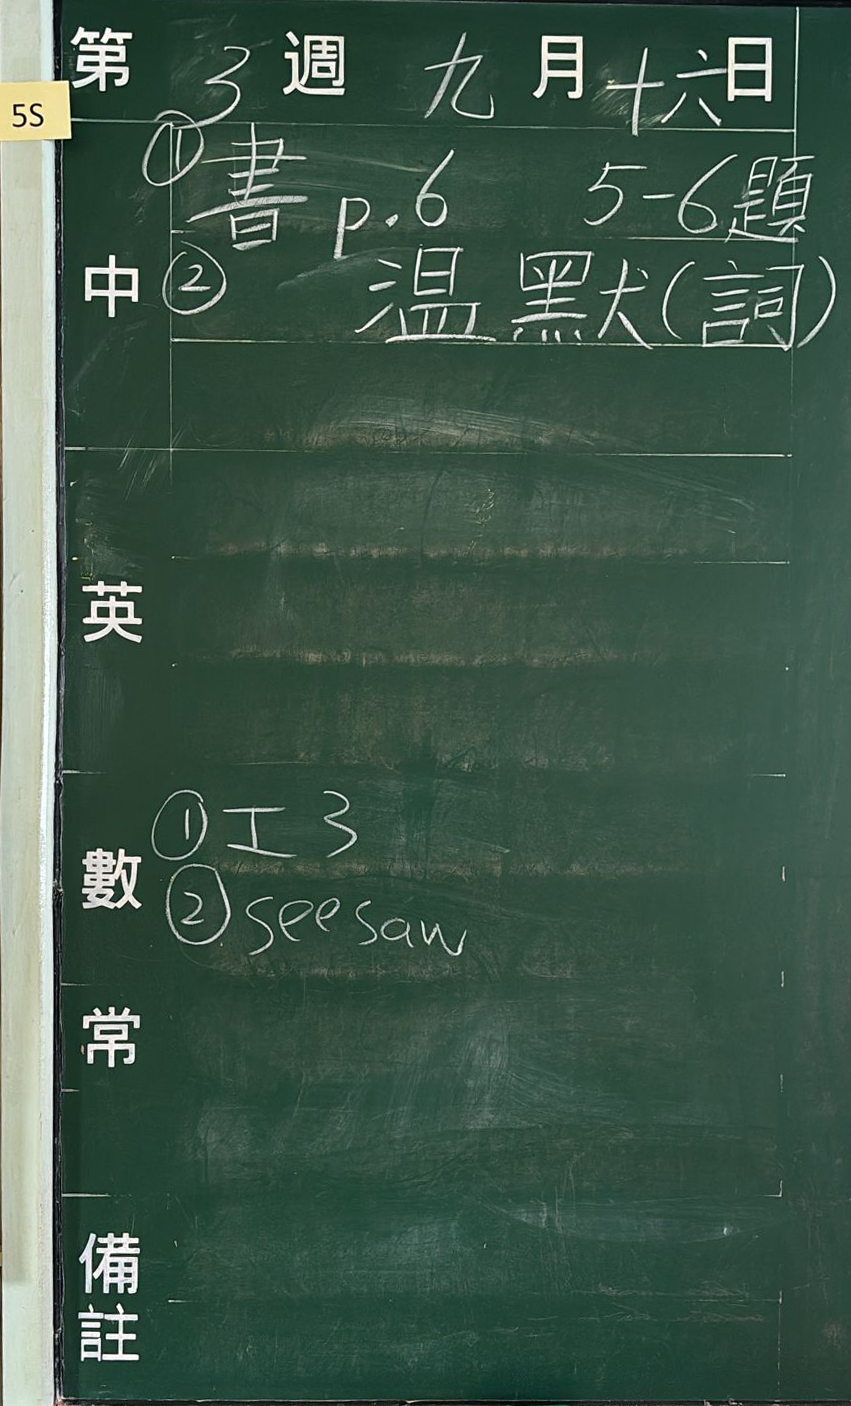 5S
第 3 週 九 月 十六 日
中
① 書 p.6 5-6題
② 溫 默(詞)
英
數
① 工 3
② seesaw
常
備註